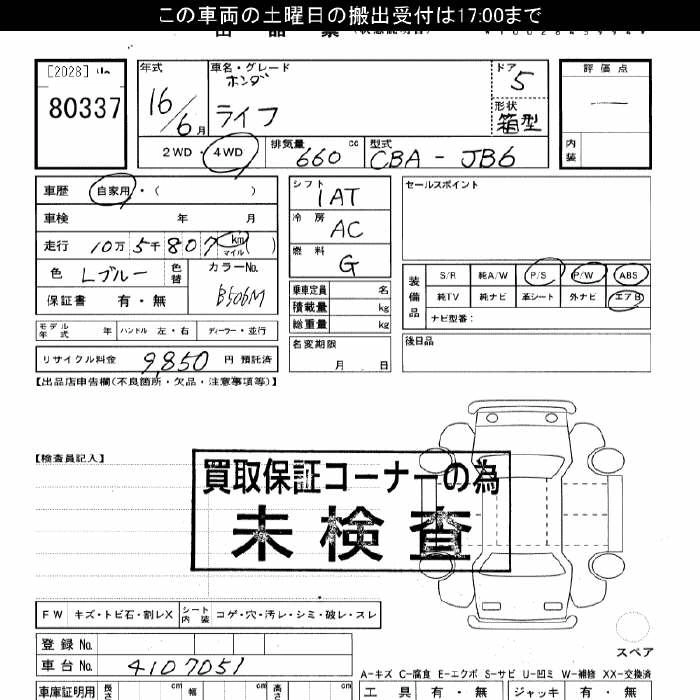 この車両の土曜日の搬出受付は17:00まで
[2028] 山
80337
年式 16/6月
車名・グレード ホンダ
ライフ
ドア 5
形状 箱型
評価点
内装
2WD・4WD 排気量 660 cc 型式 CBA - JB6
車歴 自家用・( )
車検 年 月
走行 10万5千807 km マイル ( )
色 Lブルー 色替 カラーNo. B506M
保証書 有・無
モデル年式 年 ハンドル 左・右 ディーラー・並行
リサイクル料金 9,850 円 預託済
シフト 1AT
冷房 AC
燃料 G
乗車定員 名
積載量 kg
総重量 kg
名変期限 月 日
セールスポイント
装備品 S/R 純A/W P/S P/W ABS
純TV 純ナビ 革シート 外ナビ エアB
ナビ型番:
後日品
【出品店申告欄(不良箇所・欠品・注意事項等)】
【検査員記入】
買取保証コーナーの為
未検査
FW キズ・トビ石・割レX シート内装 コゲ・穴・汚レ・シミ・破レ・スレ
登録No.
車台No. 4107051
スペア
A-キズ C-腐食 E-エクボ S-サビ U-凹ミ W-補修 XX-交換済
車庫証明用 長さ cm 幅 cm 高さ cm 工具 有・無 ジャッキ 有・無